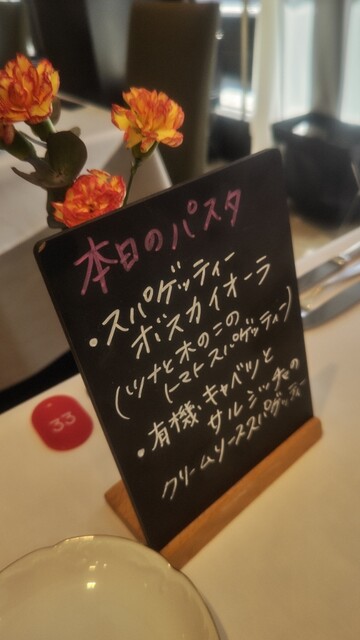 本日のパスタ
・スパゲッティー
ボスカイオーラ
(ツナと木のこの
トマトスパゲッティ)
・有機キャベツと
サルシッチャの
クリームソーススパゲッティー
33